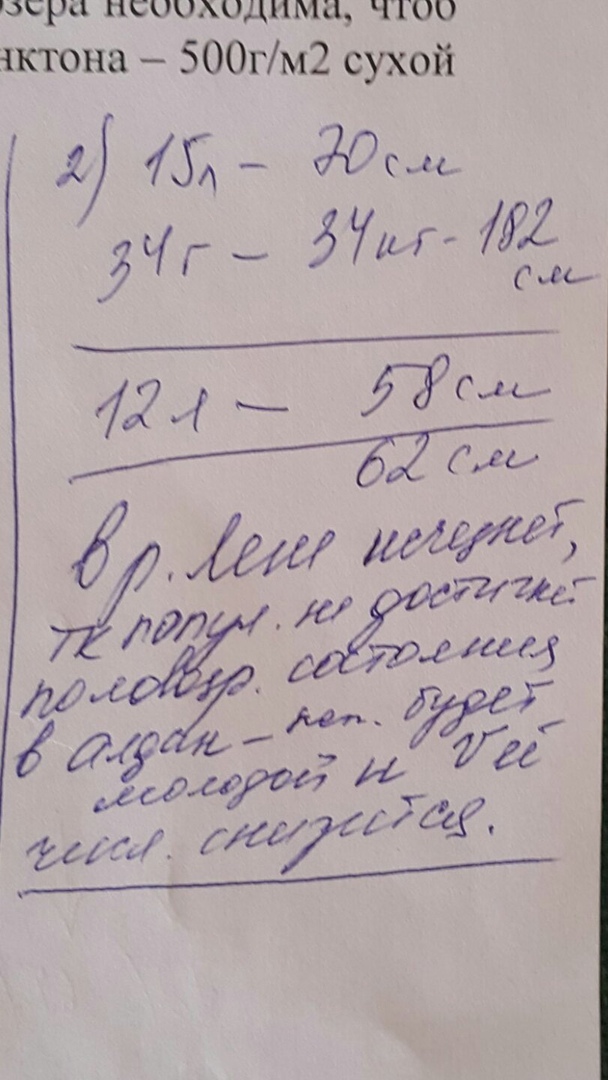 озера необходима, чтоб
нктона – 500г/м2 сухой
2) 15л – 70 см
34 г – 34 кг - 182
см
12 л – 58 см
62 см
в р. Лене исчезнет,
тк попул. не достигнет
половозр. состояния
в Алдан – поп. будет
молодой и V её
числ. снизится.